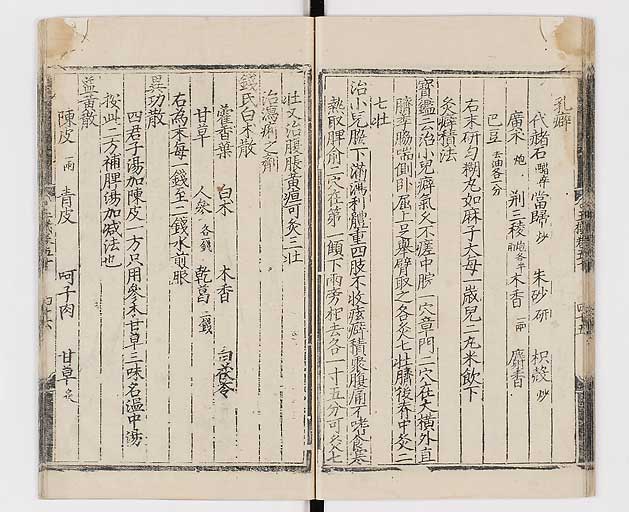 乳癖
代赭石 醋淬 當歸 炒 朱砂 研 枳殼 炒
廣朮 炮 荆三稜 炮各半 木香 一兩 麝香
巴豆 去油各一分
右末研勻糊丸如麻子大每一歲兒二丸米飲下
灸癖積法
寶鑑云治小兒癖氣久不瘥中脘一穴章門二穴在大橫外直
臍季脇端側卧屈上足擧臂取之各灸七壯臍後脊中灸二
七壯
治小兒脇下滿瀉利體重四肢不收痃癖積聚腹痛不嗜食寒
熱取脾俞二穴在第一顀下兩旁相去各一寸五分可灸七
壯又治腹脹黃疸可灸三壯
治瀉痢之劑
錢氏白朮散
藿香葉 白朮 木香 白茯苓
甘草 人參 各錢 乾葛 二錢
右為末每一錢至二錢水煎服
異功散
四君子湯加陳皮一方只用參朮甘草三味名溫中湯
按此二方補脾湯加減法也
益黃散
陳皮 兩 青皮 呵子肉 甘草 炙